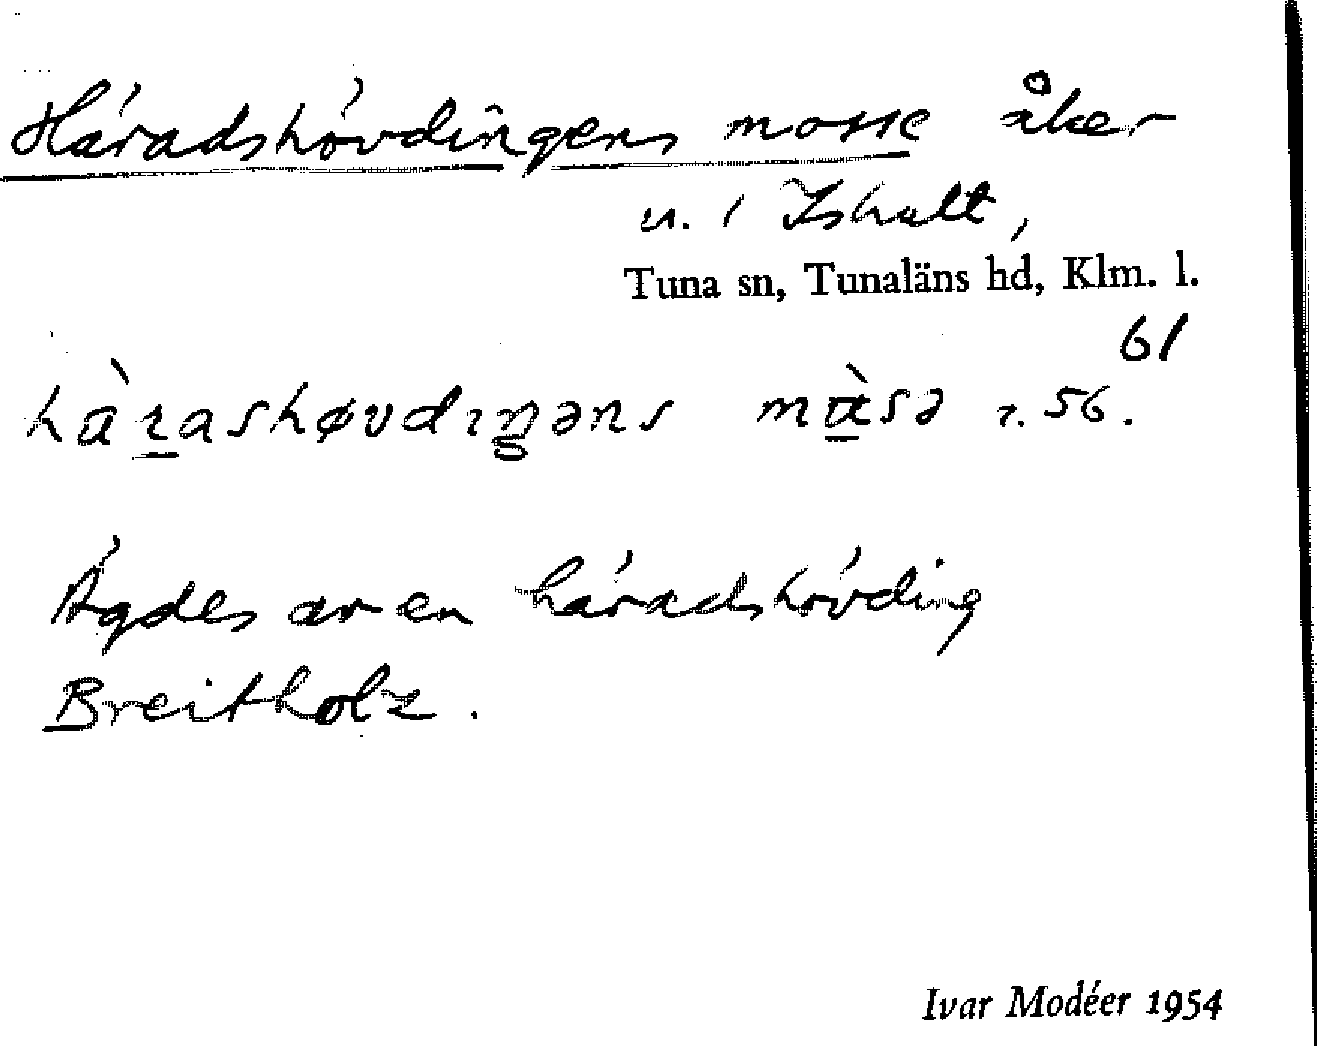 Häradshövdingens mosse åker
u. i Ishult,
Tuna sn, Tunaläns hd, Klm. l.
61
hàrashøvdıŋəns màsə r. 56.
Ägdes av en häradshövding
Breitholz.
Ivar Modéer 1954